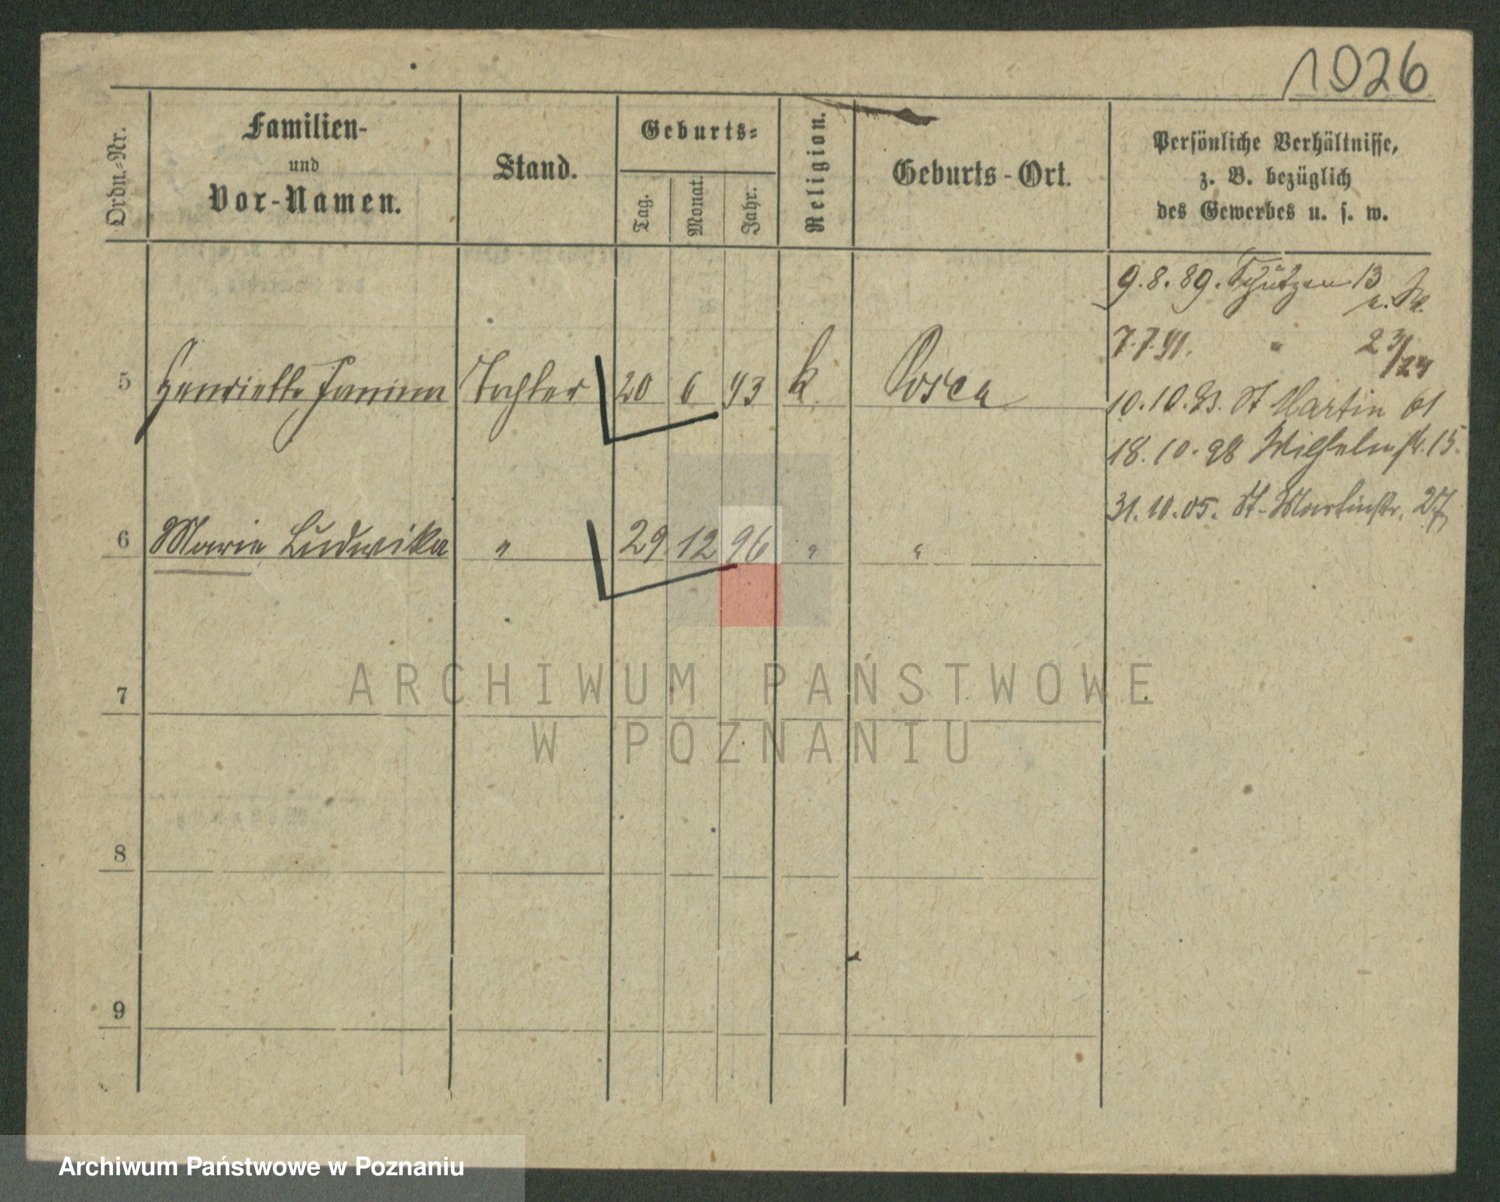 1026
Ordn.-Nr.
Familien-
und
Vor-Namen.
Stand.
Geburts-
Tag.
Monat.
Jahr.
Religion.
Geburts-Ort.
Persönliche Verhältnisse,
z. B. bezüglich
des Gewerbes u. s. w.
9. 8. 89. Schützen 13
7. 7. 91. " 23/24
10. 10. 93. St Martin 61
18. 10. 98 Wilhelmstr. 15.
31. 10. 05. St. Martinstr. 27
5 Henriette Janina Tochter 20 6 93 k Posen
6 Marie Ludwika " 29 12 96 " "
7
8
9
ARCHIWUM PAŃSTWOWE
W POZNANIU
Archiwum Państwowe w Poznaniu